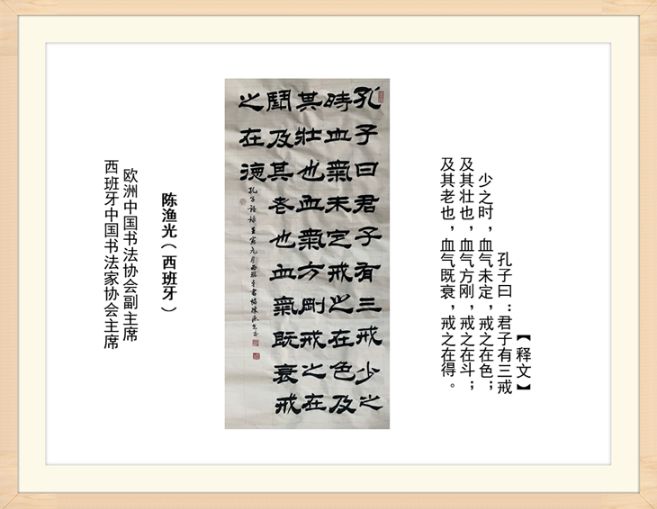 【释文】
孔子曰：君子有三戒
少之时，血气未定，戒之在色；
及其壮也，血气方刚，戒之在斗；
及其老也，血气既衰，戒之在得。
孔子曰君子有三戒少之
時血氣未定戒之在色及
其壯也血氣方剛戒之在
鬭及其老也血氣既衰戒
之在得
陈渔光（西班牙）
欧洲中国书法协会副主席
西班牙中国书法家协会主席